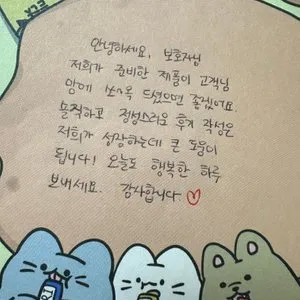 안녕하세요, 보호자님
저희가 준비한 제품이 고객님
맘에 쏘옥 드셨으면 좋겠어요.
솔직하고 정성스러운 후기 작성은
저희가 성장하는데 큰 도움이
됩니다! 오늘도 행복한 하루
보내세요. 감사합니다